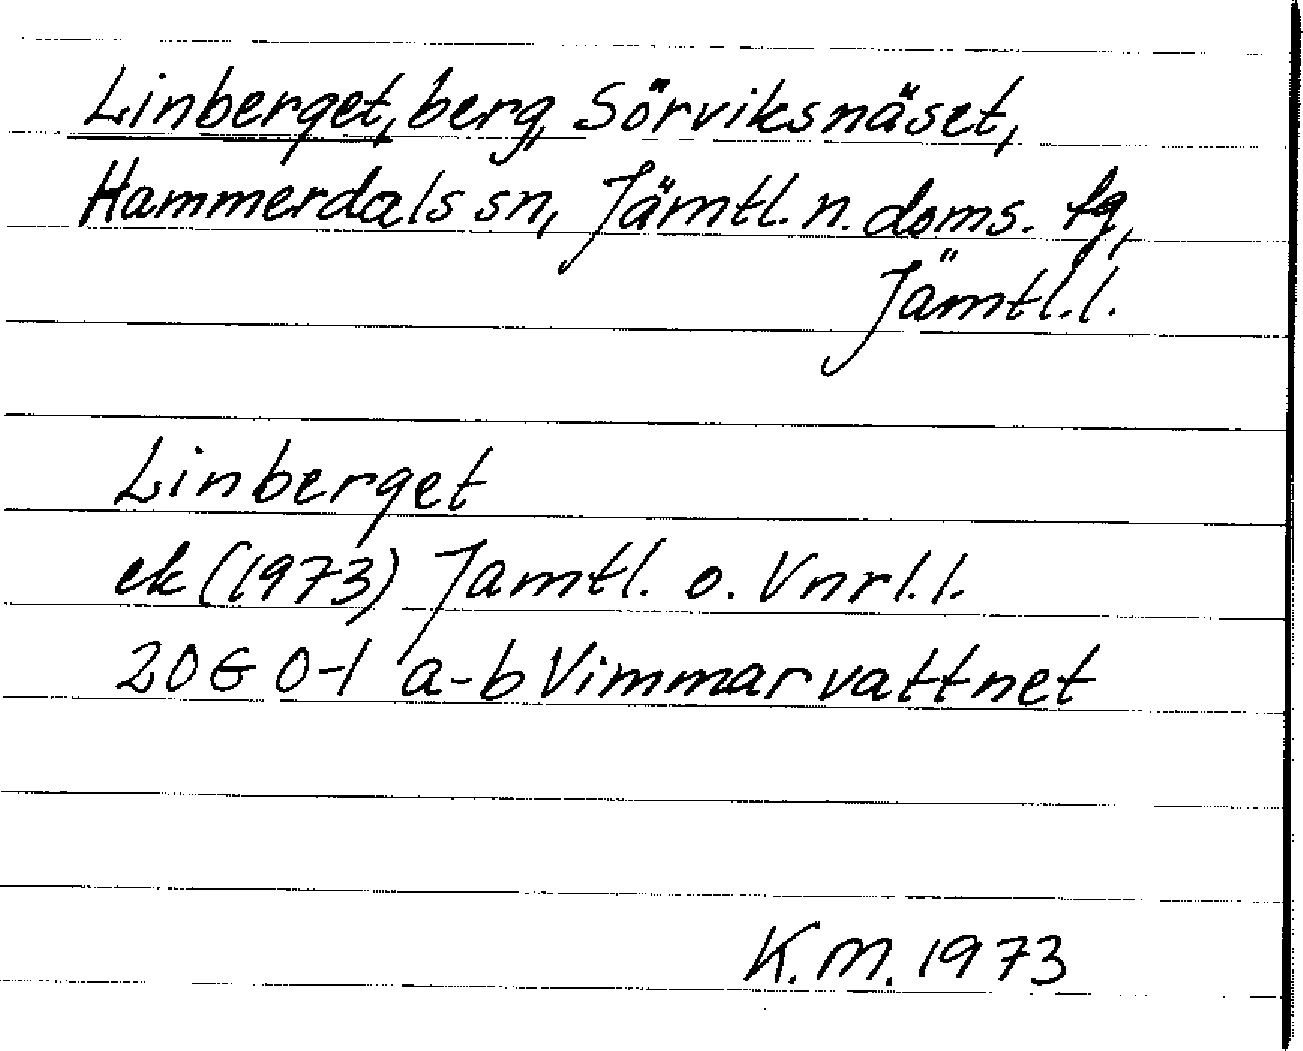 Linberget, berg, Sörviksnäset,
Hammerdals sn, Jämtl. n. doms. fg,
Jämtl.l.
Linberget
ek (1973) Jämtl. o. Vnrl.l.
20G 0-1 a-b Vimmarvattnet
K.M. 1973